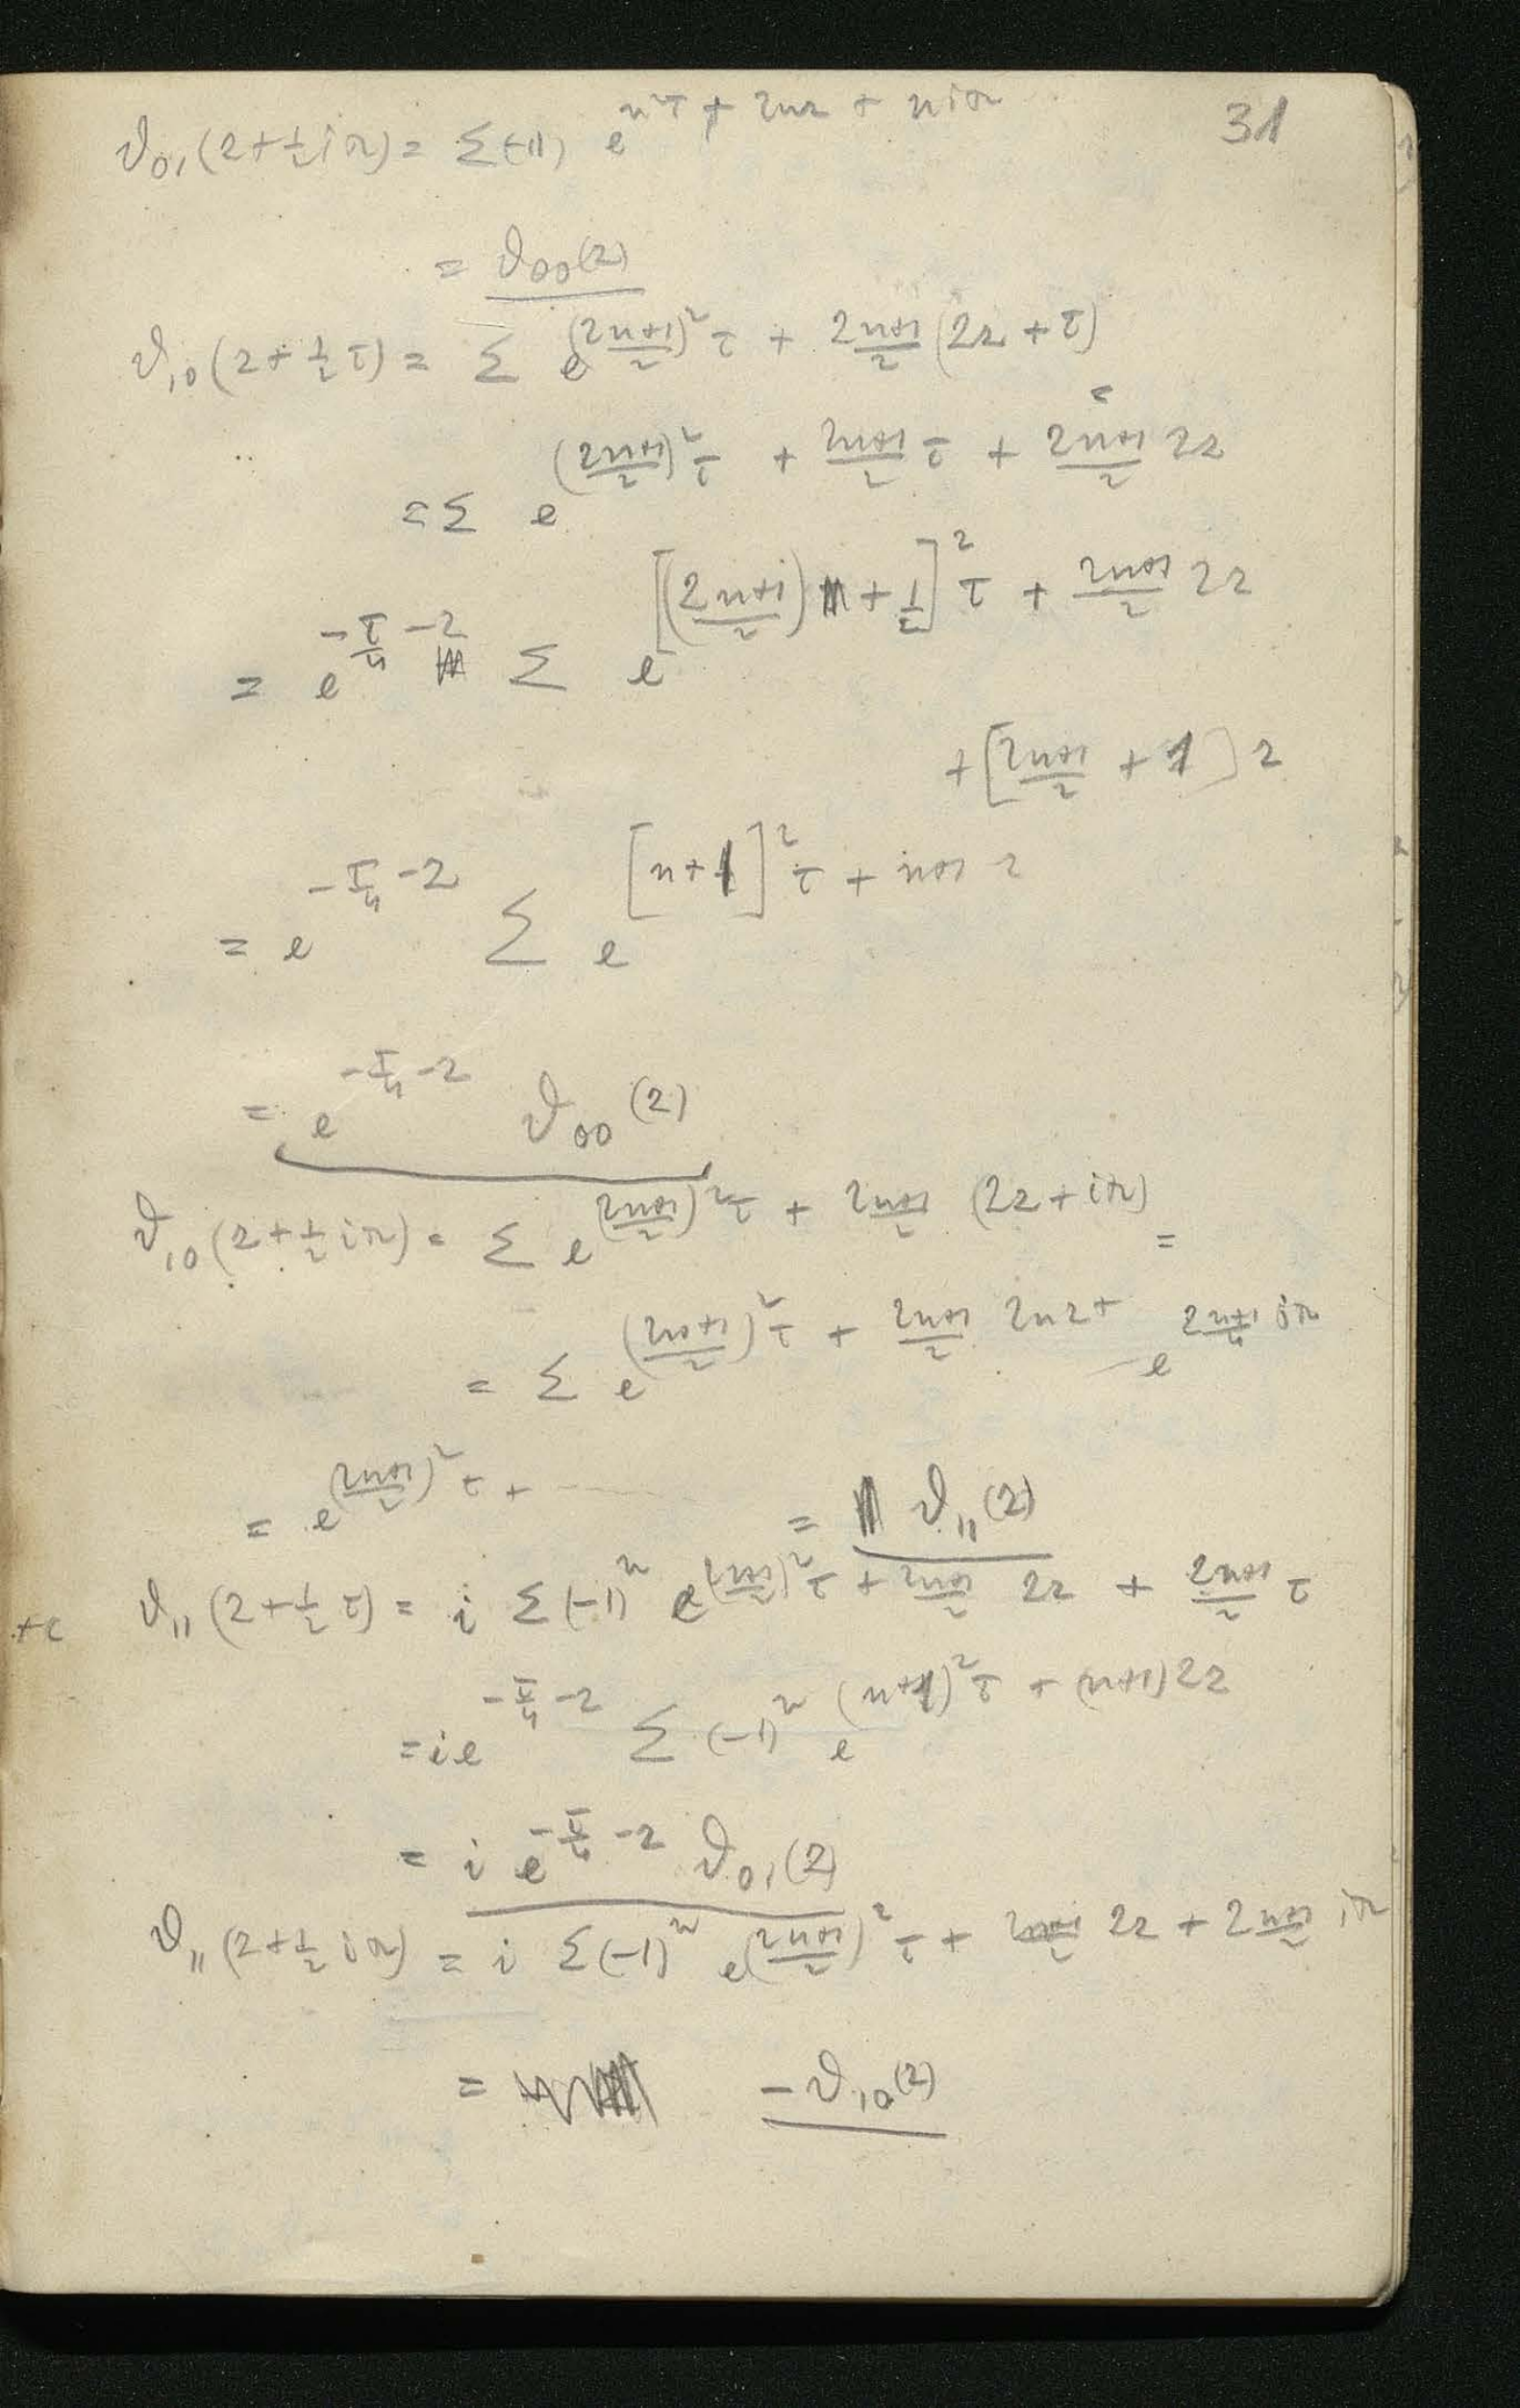 31
ϑ₀₁(z+½iπ) = Σ(-1) e^{n²τ + 2nz + niπ}
= ϑ₀₀(z)
ϑ₁₀(z+½τ) = Σ e^{(2n+1/2)²τ + 2n+1/2 (2z+τ)} =
= Σ e^{(2n+1/2)²τ + 2n+1/2 τ + 2n+1/2 2z}
= e^{-τ/4 -z} Σ e^{[(2n+1/2) + 1/2]²τ + 2n+1/2 2z}
+ [2n+1/2 + 1] z
= e^{-τ/4 -z} Σ e^{[n+1]²τ + n+1 z}
= e^{-τ/4 -z} ϑ₀₀(z)
ϑ₁₀(z+½iπ) = Σ e^{(2n+1/2)²τ + 2n+1/2 (2z+iπ)} =
= Σ e^{(2n+1/2)²τ + 2n+1/2 2nz +} e^{2n+1/2 iπ}
= e^{(2n+1/2)²τ + ------} = ϑ₁₁(z)
ϑ₁₁(z+½τ) = i Σ(-1)ⁿ e^{(2n+1/2)²τ + 2n+1/2 2z + 2n+1/2 τ}
= i e^{-τ/4 -z} Σ (-1)ⁿ e^{(n+1)²τ + (n+1)2z}
= i e^{-τ/4 -z} ϑ₀₁(z)
ϑ₁₁(z+½iπ) = i Σ(-1)ⁿ e^{(2n+1/2)²τ + 2n+1/2 2z + 2n+1/2 iπ}
= -ϑ₁₀(z)